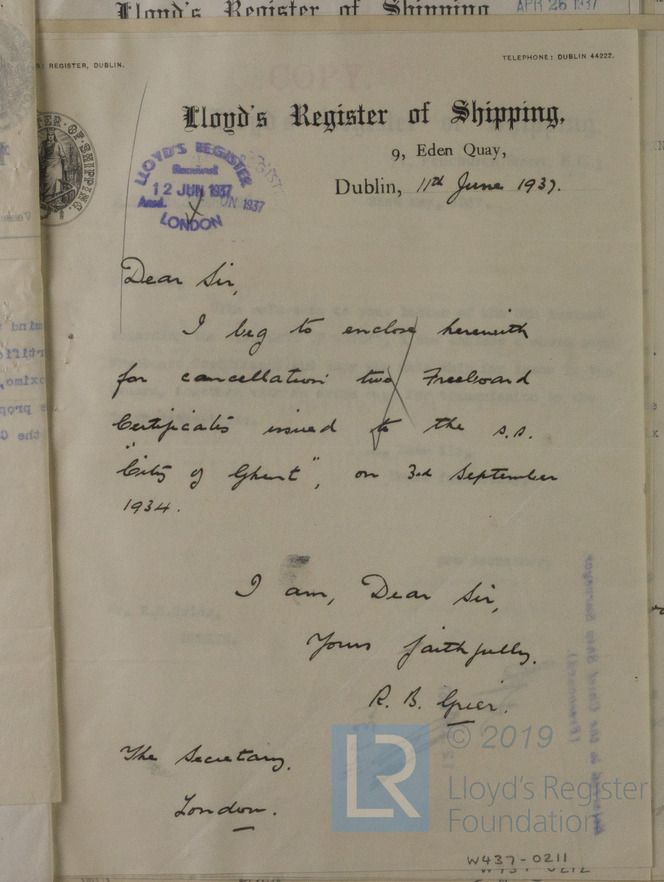 Lloyd's Register of Shipping
APR 26 1937
S REGISTER, DUBLIN.
TELEPHONE: DUBLIN 44222.
COPY.
Lloyd's Register of Shipping,
9, Eden Quay,
Dublin, 11th June 1937.
LLOYD'S REGISTER
Received
12 JUN 1937
Ansd. JUN 1937
LONDON
TER OF SHIPPING
Dear Sir,
I beg to enclose herewith
for cancellation two Freeboard
Certificates issued to the s.s.
"City of Ghent", on 3rd September
1934.
I am, Dear Sir,
Yours faithfully,
R. B. Grier.
The Secretary,
London.
LR
© 2019
Lloyd's Register
Foundation
W437-0211
W437-0212